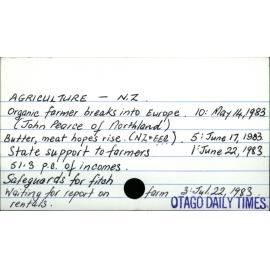 AGRICULTURE — N.Z.
Organic farmer breaks into Europe. 10: May 14, 1983
(John Pearce of Northland)
Butter, meat hopes rise. (NZ & EEC). 5: June 17, 1983
State support to farmers 1: June 22, 1983
51.3 p.c. of incomes.
Safeguards for fitch
Waiting for report on farm 3: Jul. 22, 1983
rentals. OTAGO DAILY TIMES